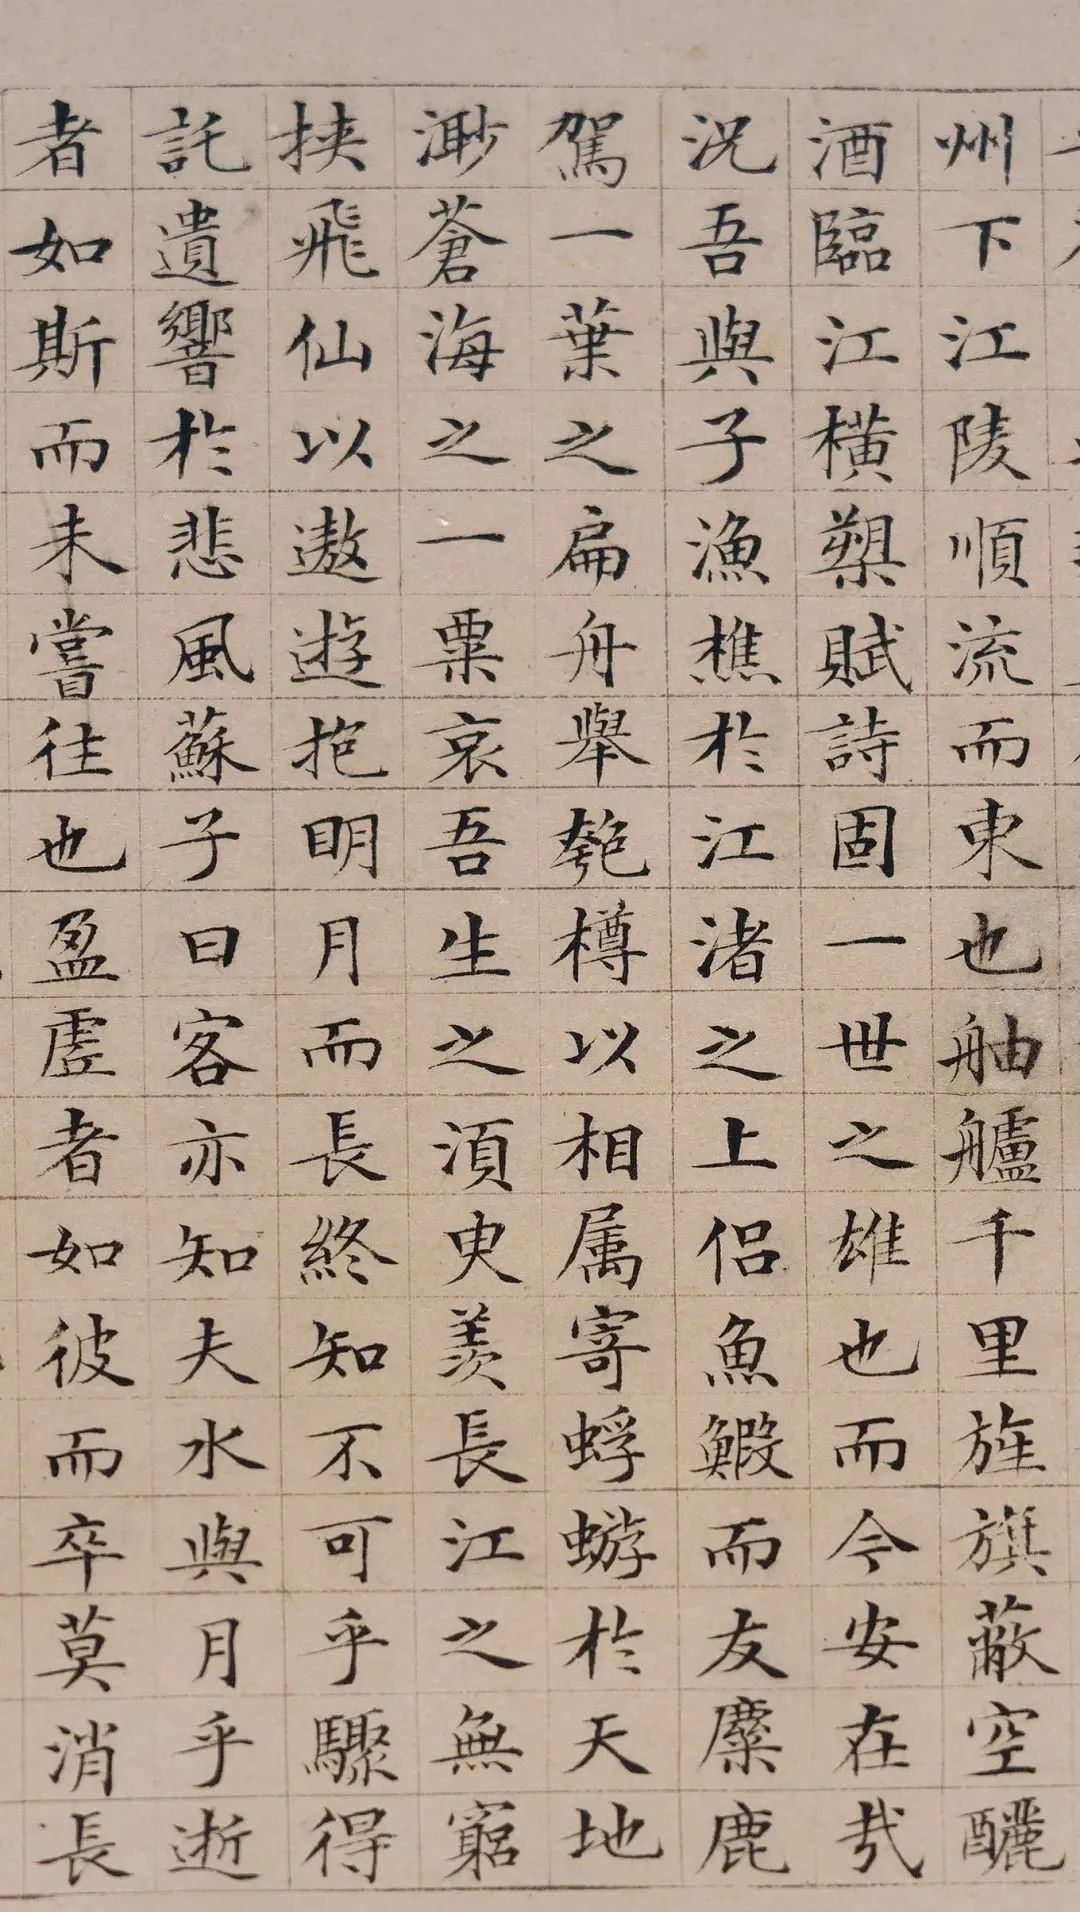 州下江陵順流而東也舳艫千里旌旗蔽空釃
酒臨江橫槊賦詩固一世之雄也而今安在哉
況吾與子漁樵於江渚之上侣魚鰕而友麋鹿
駕一葉之扁舟舉匏樽以相属寄蜉蝣於天地
渺蒼海之一粟哀吾生之須臾羨長江之無窮
挟飛仙以遨遊抱明月而長終知不可乎驟得
託遺響於悲風蘇子曰客亦知夫水與月乎逝
者如斯而未嘗往也盈虛者如彼而卒莫消長